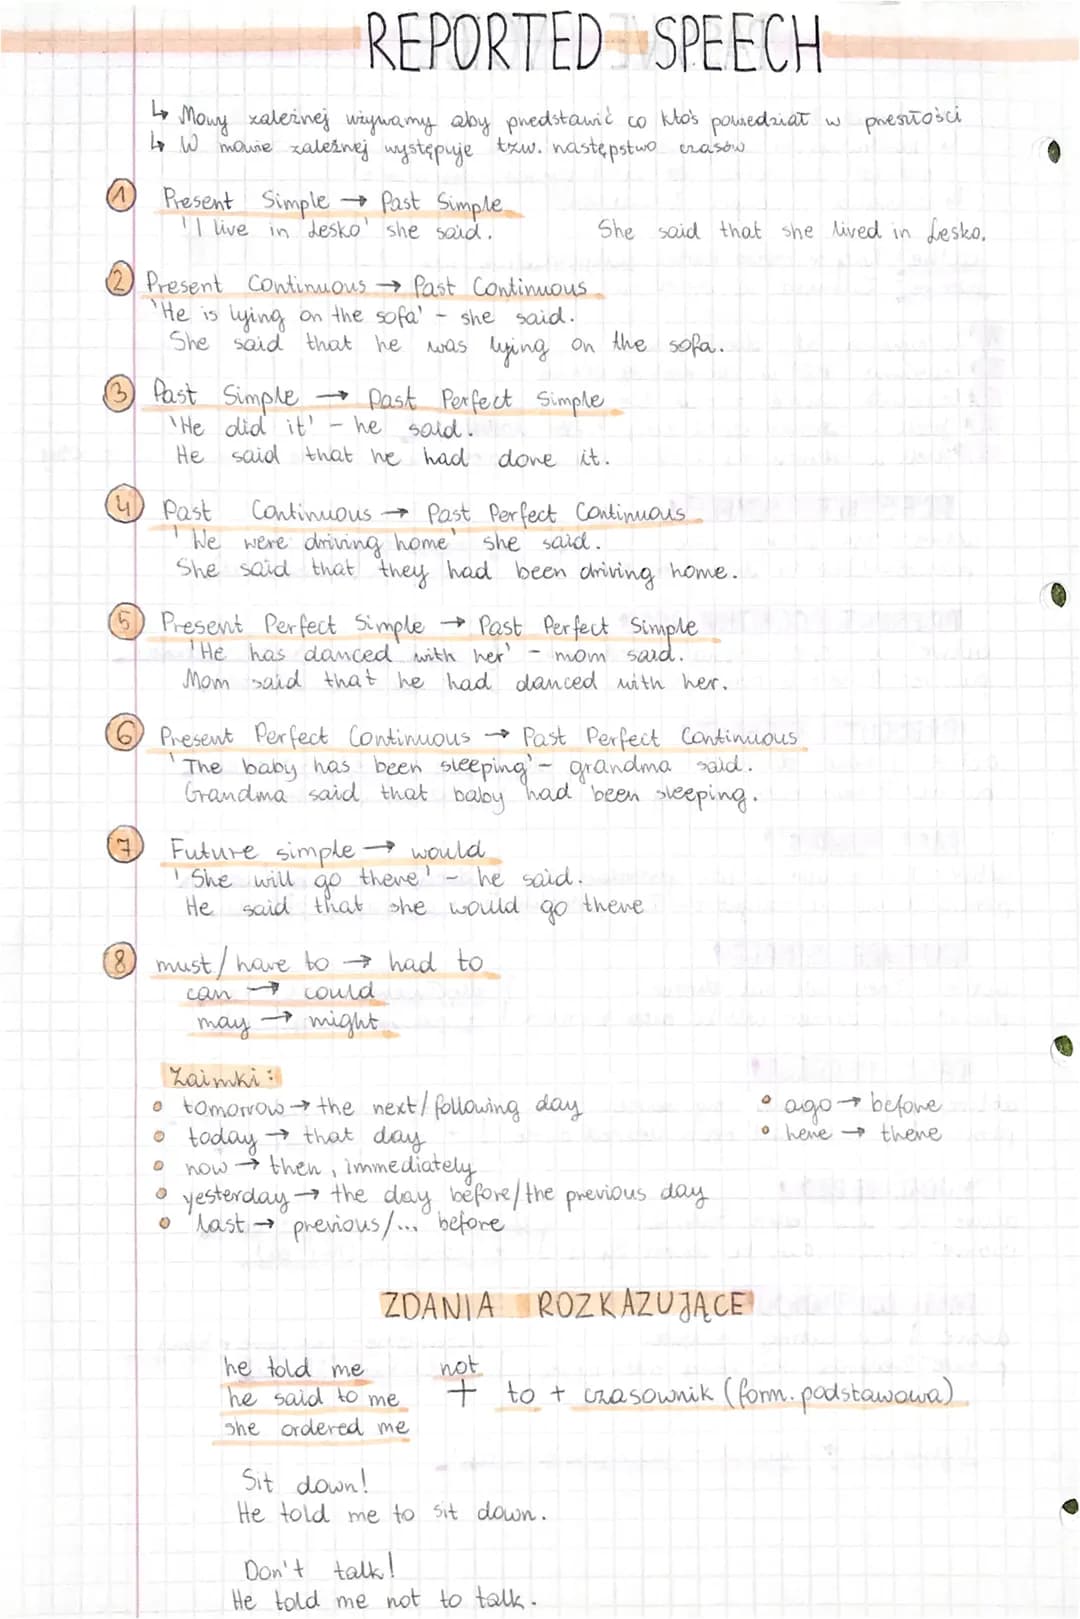 REPORTED SPEECH
↳ Mowy zależnej używamy aby przedstawić co ktoś powiedział w przeszłości
↳ W mowie zależnej występuje tzw. następstwo czasów
1 Present Simple → Past Simple
'I live in Lesko' she said. She said that she lived in Lesko.
2 Present Continuous → Past Continuous
'He is lying on the sofa' - she said.
She said that he was lying on the sofa.
3 Past Simple → Past Perfect Simple
'He did it' - he said.
He said that he had done it.
4 Past Continuous → Past Perfect Continuous
'We were driving home' she said.
She said that they had been driving home.
5 Present Perfect Simple → Past Perfect Simple
'He has danced with her' - mom said.
Mom said that he had danced with her.
6 Present Perfect Continuous → Past Perfect Continuous
'The baby has been sleeping' - grandma said.
Grandma said that baby had been sleeping.
7 Future simple → would
'She will go there' - he said.
He said that she would go there
8 must/have to → had to
can → could
may → might
Zaimki:
• tomorrow → the next/following day • ago → before
• today → that day • here → there
• now → then, immediately
• yesterday → the day before/the previous day
• last → previous/... before
ZDANIA ROZKAZUJĄCE
he told me not
he said to me + to + czasownik (form. podstawowa)
she ordered me
Sit down!
He told me to sit down.
Don't talk!
He told me not to talk.